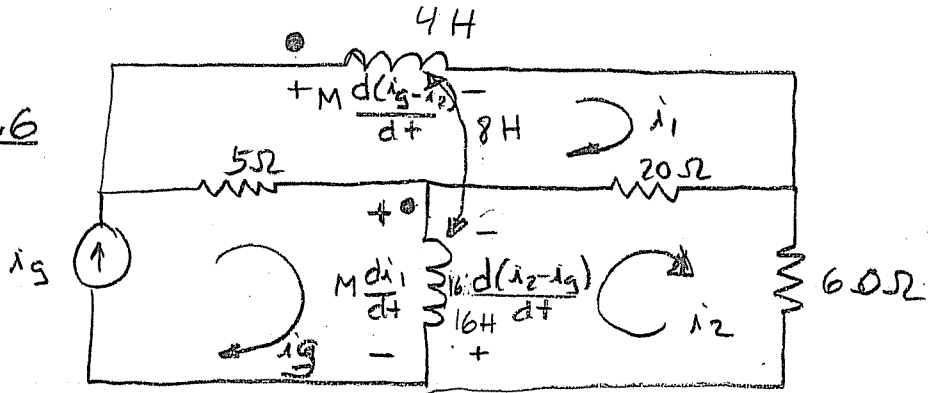 4 H
+ M d(ig-i2)/dt -
.6
8H
i1
5Ω
20Ω
+
-
ig
M di1/dt
16 d(i2-ig)/dt
16H
6 0Ω
i2
ig
-
+